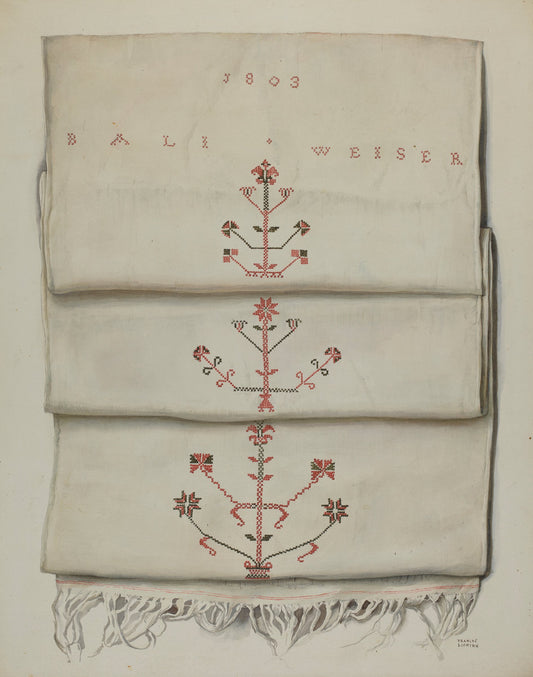 1803
BALI WEISER
FRANCES
LICHTEN